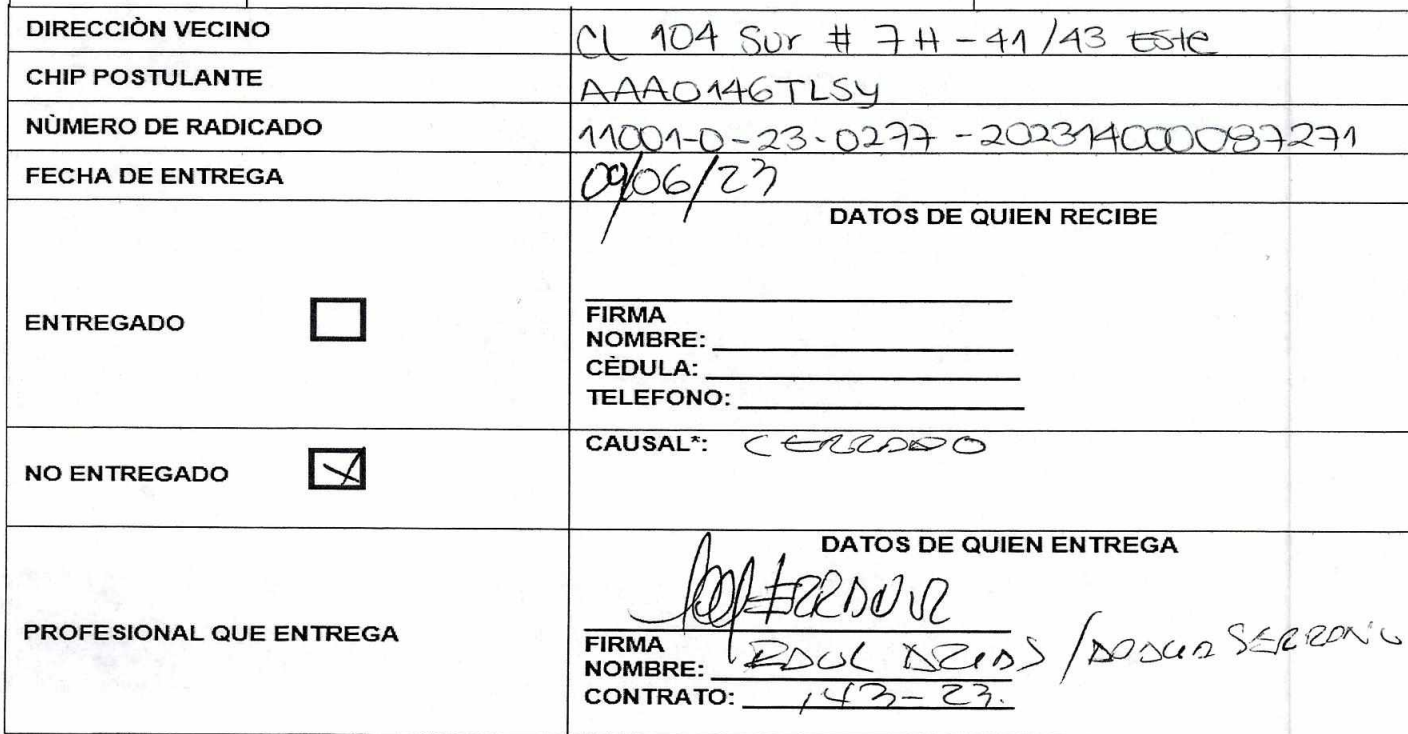 DIRECCIÒN VECINO CL 104 Sur # 7H - 41/43 Este
CHIP POSTULANTE AAA0146TLSY
NÙMERO DE RADICADO 11001-0-23-0277-202314000087271
FECHA DE ENTREGA 09/06/23
DATOS DE QUIEN RECIBE
ENTREGADO
FIRMA
NOMBRE:
CÈDULA:
TELEFONO:
NO ENTREGADO X
CAUSAL*: CERRADO
DATOS DE QUIEN ENTREGA
PROFESIONAL QUE ENTREGA
FIRMA
NOMBRE: RAUL ARIAS / SERRANO
CONTRATO: 143-23.